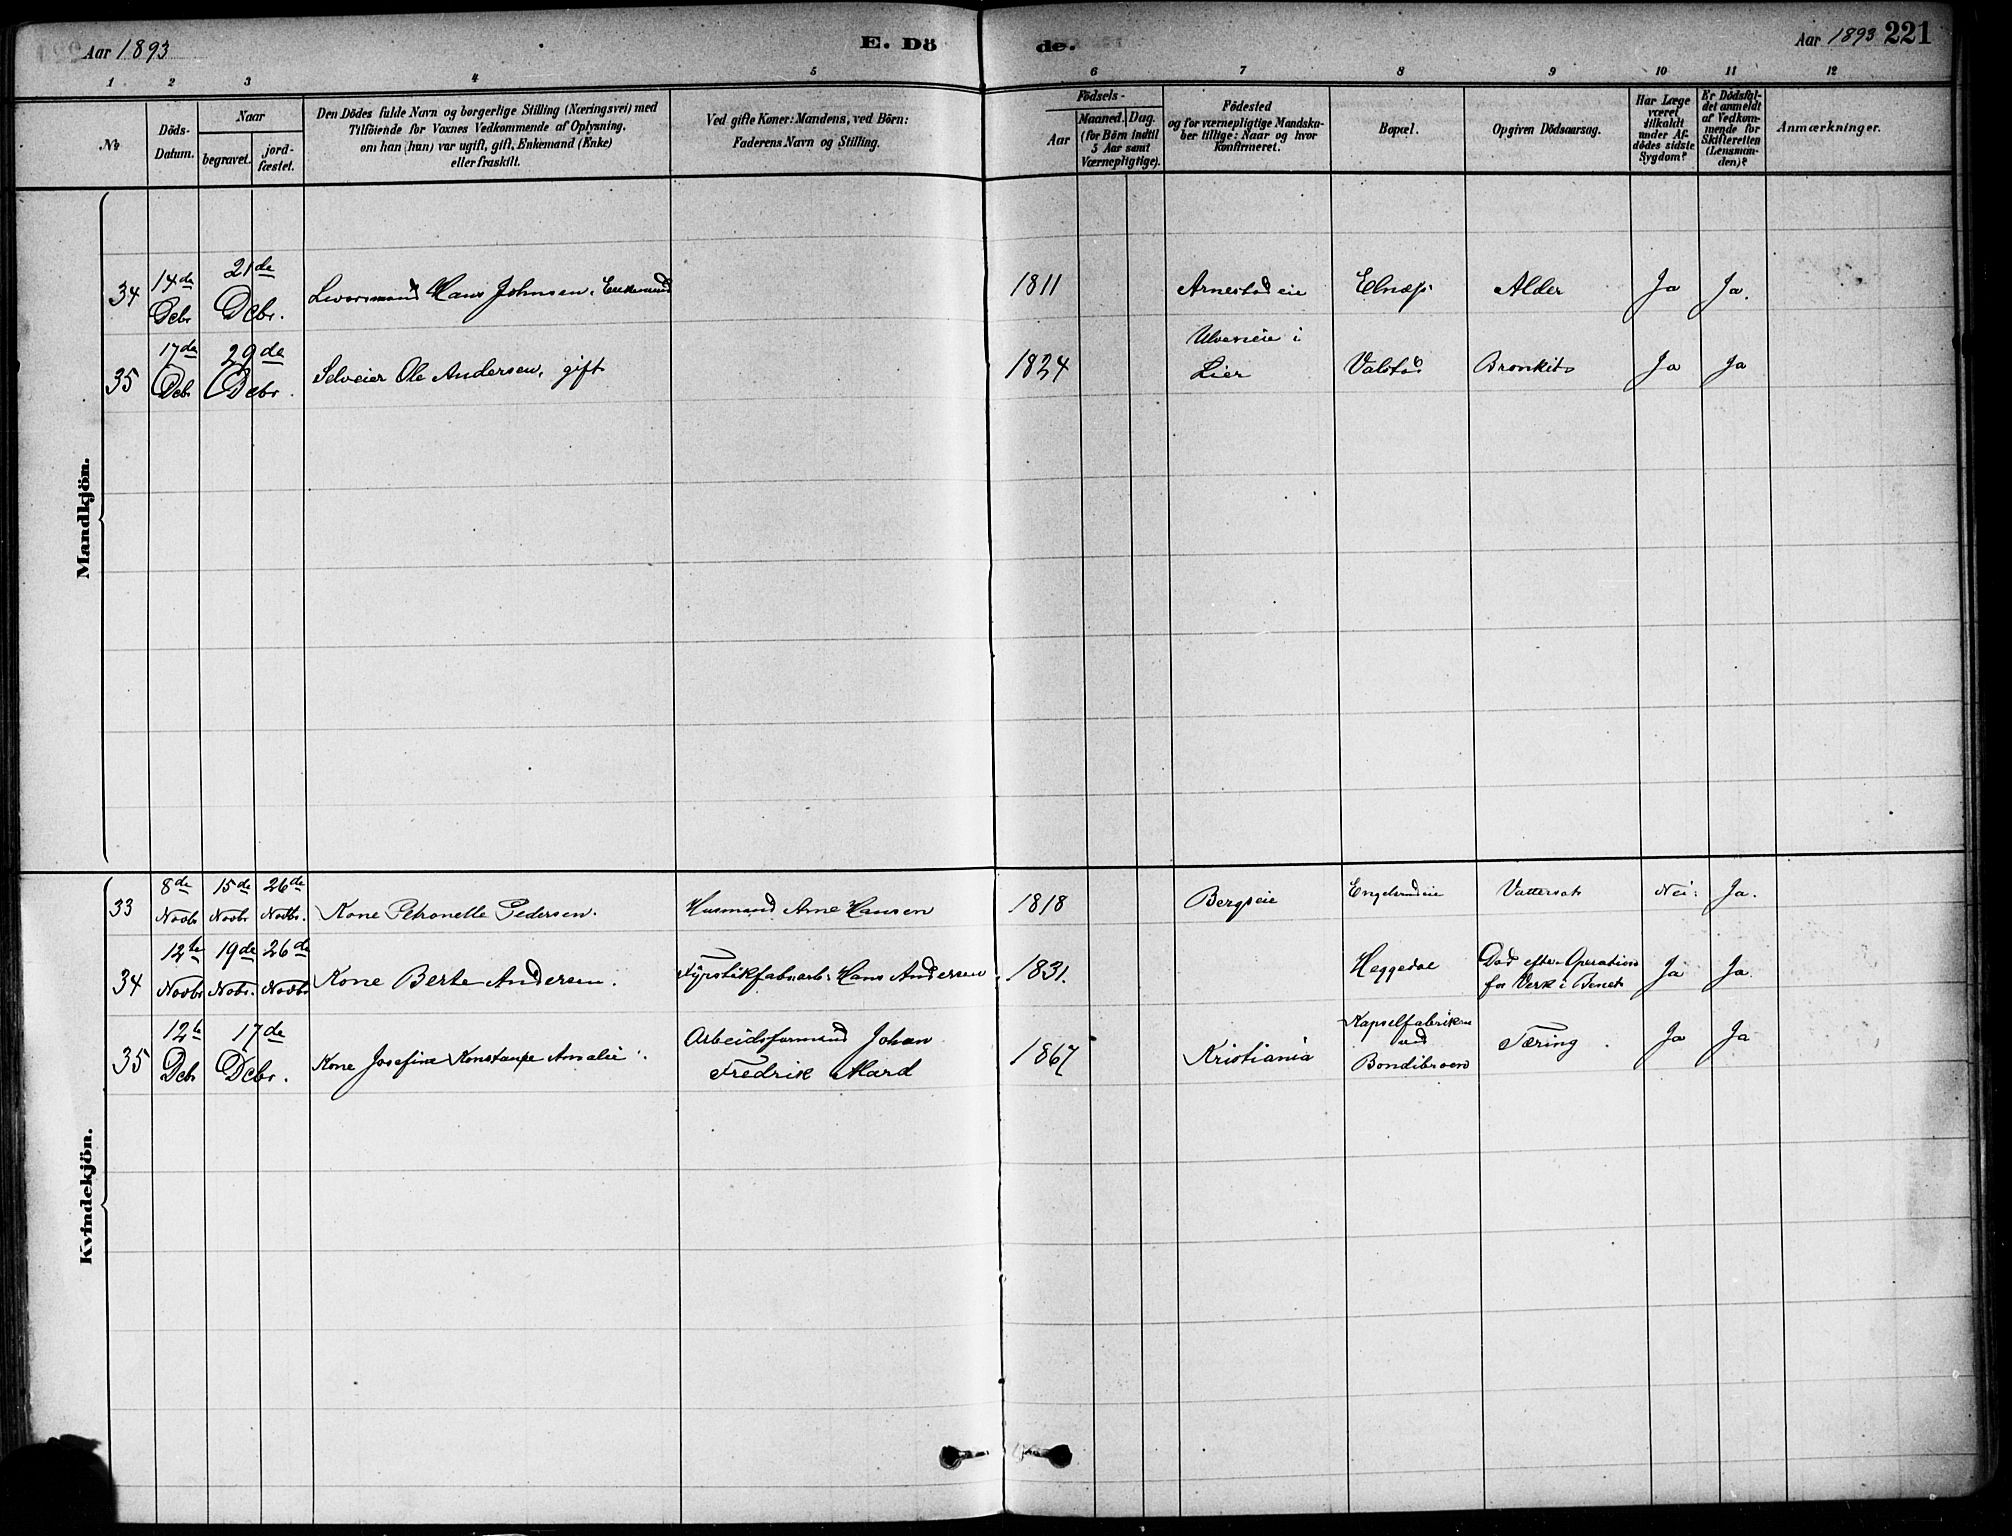 Aar 1893
E. Dö
de.
Aar 1893 221
1 2 3 4 5 6 7 8 9 10 11 12
№
Döds-
Datum.
Naar
begravet.
jord-
fæstet.
Den Dödes fulde Navn og borgerlige Stilling (Næringsvei) med
Tilföiende for Voxnes Vedkommende af Oplysning,
om han (hun) var ugift, gift, Enkemand (Enke)
eller fraskilt.
Ved gifte Koner: Mandens, ved Börn:
Faderens Navn og Stilling.
Födsels-
Aar
Maaned. Dag.
(for Börn indtil
5 Aar samt
Værnepligtige).
Födested
og for værnepligtige Mandska-
ber tillige: Naar og hvor
Konfirmeret.
Bopæl.
Opgiven Dödsaarsag.
Har Læge
været
tilkaldt
under Af-
dödes sidste
Sygdom?
Er Dödsfal-
det anmeldt
af Vedkom-
mende for
Skifteretten
(Lensman-
den)?
Anmærkninger.
Mandkjön.
34 14de Debr 21de Debr. Hans Johnsen, Enkemand 1811 Arnestadeie Elnæs Alder Ja Ja.
35 17de Debr 29de Debr. Selveier Ole Andersen, gift 1824 Ulveneie i Lier Valstad Bronkit Ja Ja
Kvindekjön.
33 8de Novbr 15de Novbr 26de Novbr. Kone Petronelle Pedersen. Husmand Arne Hansen 1818 Bergseie Engelsrudeie Vattersot Nei. Ja.
34 12te Novbr 19de Nobr. 26de Novbr Kone Berte Andersen. Fyrstikfabrarb. Hans Andersen 1831. Heggedal Död efter Operation for Verk i Benet Ja Ja.
35 12te Debr 17de Debr. Kone Josefine Konstanse Amalie Arbeidsformand Johan Fredrik Mard 1867 Kristiania Kapselfabriken ved Bondibroen Tæring. Ja Ja